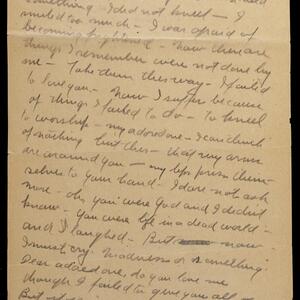 something - I did not kneel - I
smiled too much - I was afraid of
becoming - Now there are
things I remember were not done by
me - Take them this way - I failed
to love you - Now I suffer because
of things I failed to do - To kneel
to worship - my adored one - I can think
of nothing but this - that my arms
are around you - my lips press them-
selves to your hand. I dare not ask
more - oh, you were God and I did not
know - You were life in a dead world -
and I laughed - But now
I must cry. Madness or something.
Dear adored one, do you love me
though I failed to give you all -
But